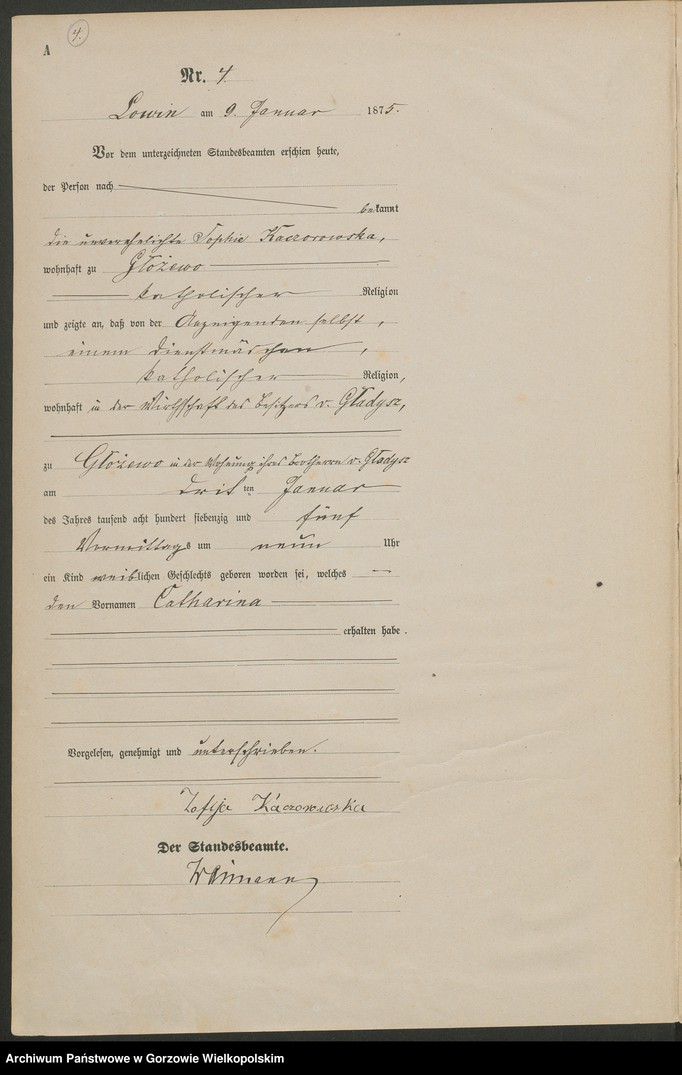 4.
A
Nr. 4
Lowin am 9. Januar 1875.
Vor dem unterzeichneten Standesbeamten erschien heute,
der Person nach
bekannt
die unverehelichte Sophie Kaczorowska,
wohnhaft zu Głożewo
katholischer Religion
und zeigte an, daß von der Anzeigenden selbst,
einem Dienstmädchen,
katholischer Religion,
wohnhaft in der Wirthschaft des Besitzers v. Gładysz,
zu Głożewo in der Wohnung ihres Brotherrn v. Gładysz
am dritten Januar
des Jahres tausend acht hundert siebenzig und fünf
Vormittags um neun Uhr
ein Kind weiblichen Geschlechts geboren worden sei, welches
den Vornamen Catharina
erhalten habe.
Vorgelesen, genehmigt und unterschrieben.
Zofija Kaczorowska
Der Standesbeamte.
Archiwum Państwowe w Gorzowie Wielkopolskim